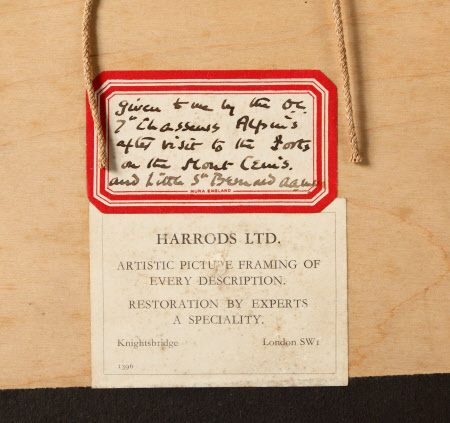 given to me by the OC
7th Chasseurs Alpins
after visit to the Forts
on the Mont Cenis.
and Little St Bernard
NURA ENGLAND
HARRODS LTD.
ARTISTIC PICTURE FRAMING OF
EVERY DESCRIPTION.
RESTORATION BY EXPERTS
A SPECIALITY.
Knightsbridge London SW1
1396